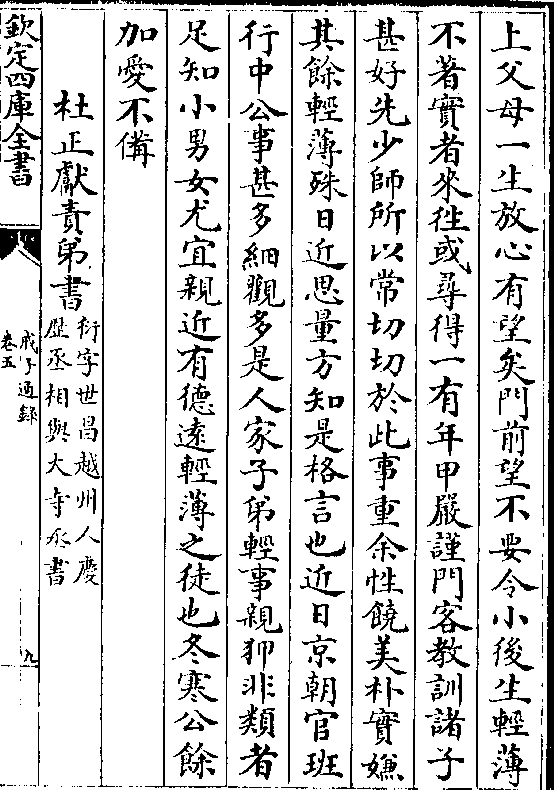 上父母一生放心有望矣門前望不要令小後生輕薄
不著實者來徃或尋得一有年甲嚴謹門客教訓諸子
甚好先少師所以常切切於此事重余性饒美朴實嫌
其餘輕薄殊日近思量方知是格言也近日京朝官班
行中公事甚多細觀多是人家子弟輕事親狎非類者
足知小男女尤宜親近有德逺輕薄之徒也冬寒公餘
加愛不備
杜正獻責弟書
衍字世昌越州人慶
歴丞相與大寺丞書
欽定四庫全書
戒子通録
卷五
九